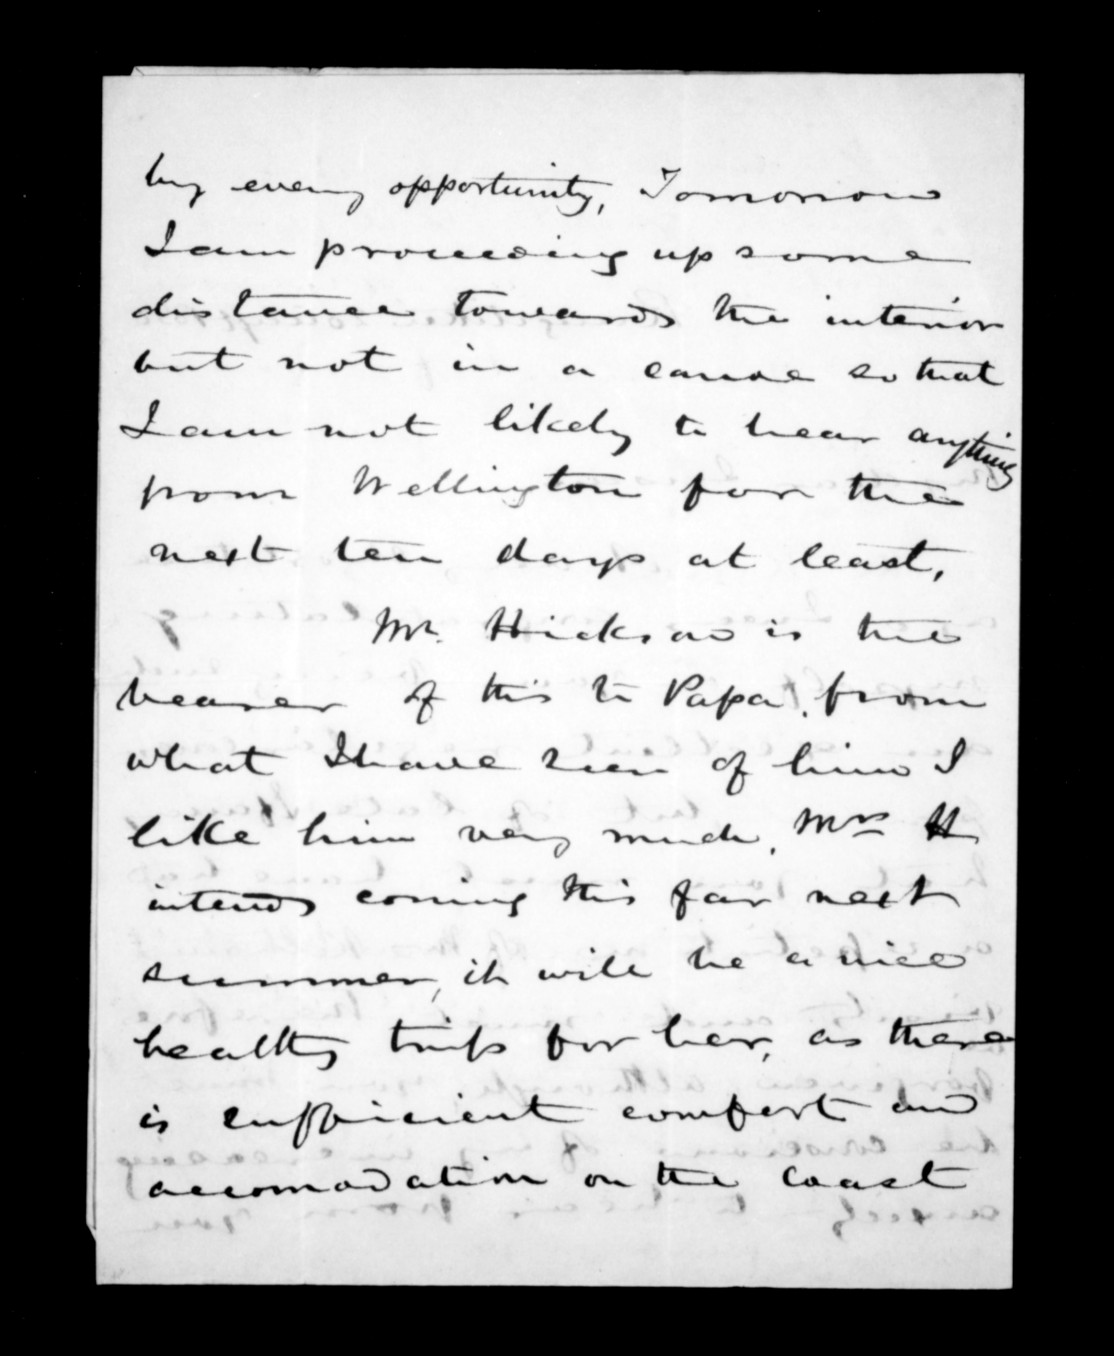 by every opportunity, Tomorrow
I am proceeding up some
distance towards the interior
but not in a canoe so that
I am not likely to hear anything
from Wellington for the
next ten days at least,
Mr. Hickson is the
bearer of this to Papa, from
what I have seen of him I
like him very much, Mrs H
intends coming this far next
summer, it will be a nice
healthy trip for her, as there
is sufficient comfort and
accomodation on the Coast